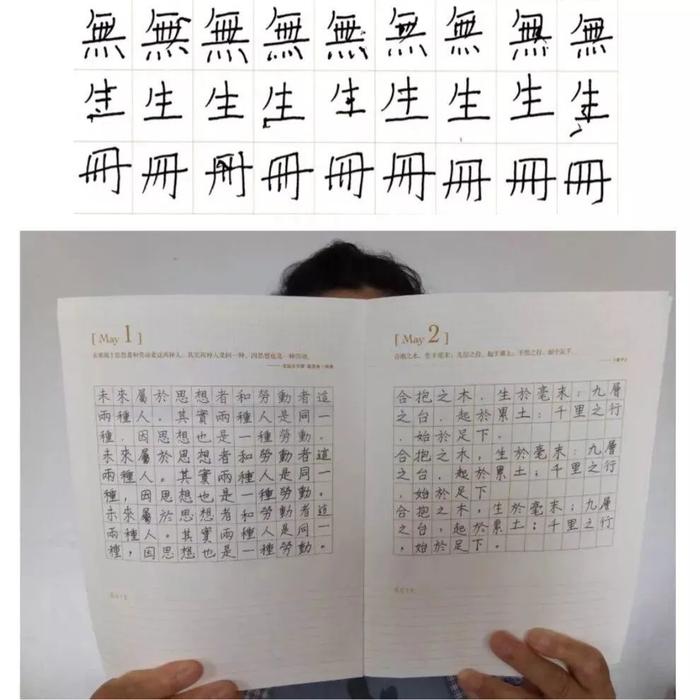 無無無無無無無無無
生生生生生生生生生
冊冊冊冊冊冊冊冊冊
[ May 1 ]
未來屬於思想者和勞動者這
兩種人。其實兩種人是同一
種,因思想也是一種勞動。
未來屬於思想者和勞動者這
兩種人。其實兩種人是同一
種,因思想也是一種勞動。
未來屬於思想者和勞動者這
兩種人。其實兩種人是同一
種,因思想也是一種勞動。
[ May 2 ]
合抱之木,生于毫末;九层之台,起于累土;千里之行,始于足下。
合抱之木,生於毫末;九層
之台,起於累土;千里之行
,始於足下。
合抱之木,生於毫末;九層
之台,起於累土;千里之行
,始於足下
合抱之木,生於毫末;九層
之台,起於累土;千里之行
,始於足下。